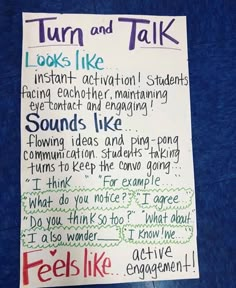 Turn and Talk
Looks like
instant activation! Students
facing eachother, maintaining
eye contact and engaging!
Sounds like...
flowing ideas and ping-pong
communication. Students taking
turns to keep the convo going...
"I think      "For example...
"What do you notice?" "I agree
"Do you think so too?" "What about
"I also wonder      "I know we..."
Feels like... active
engagement!